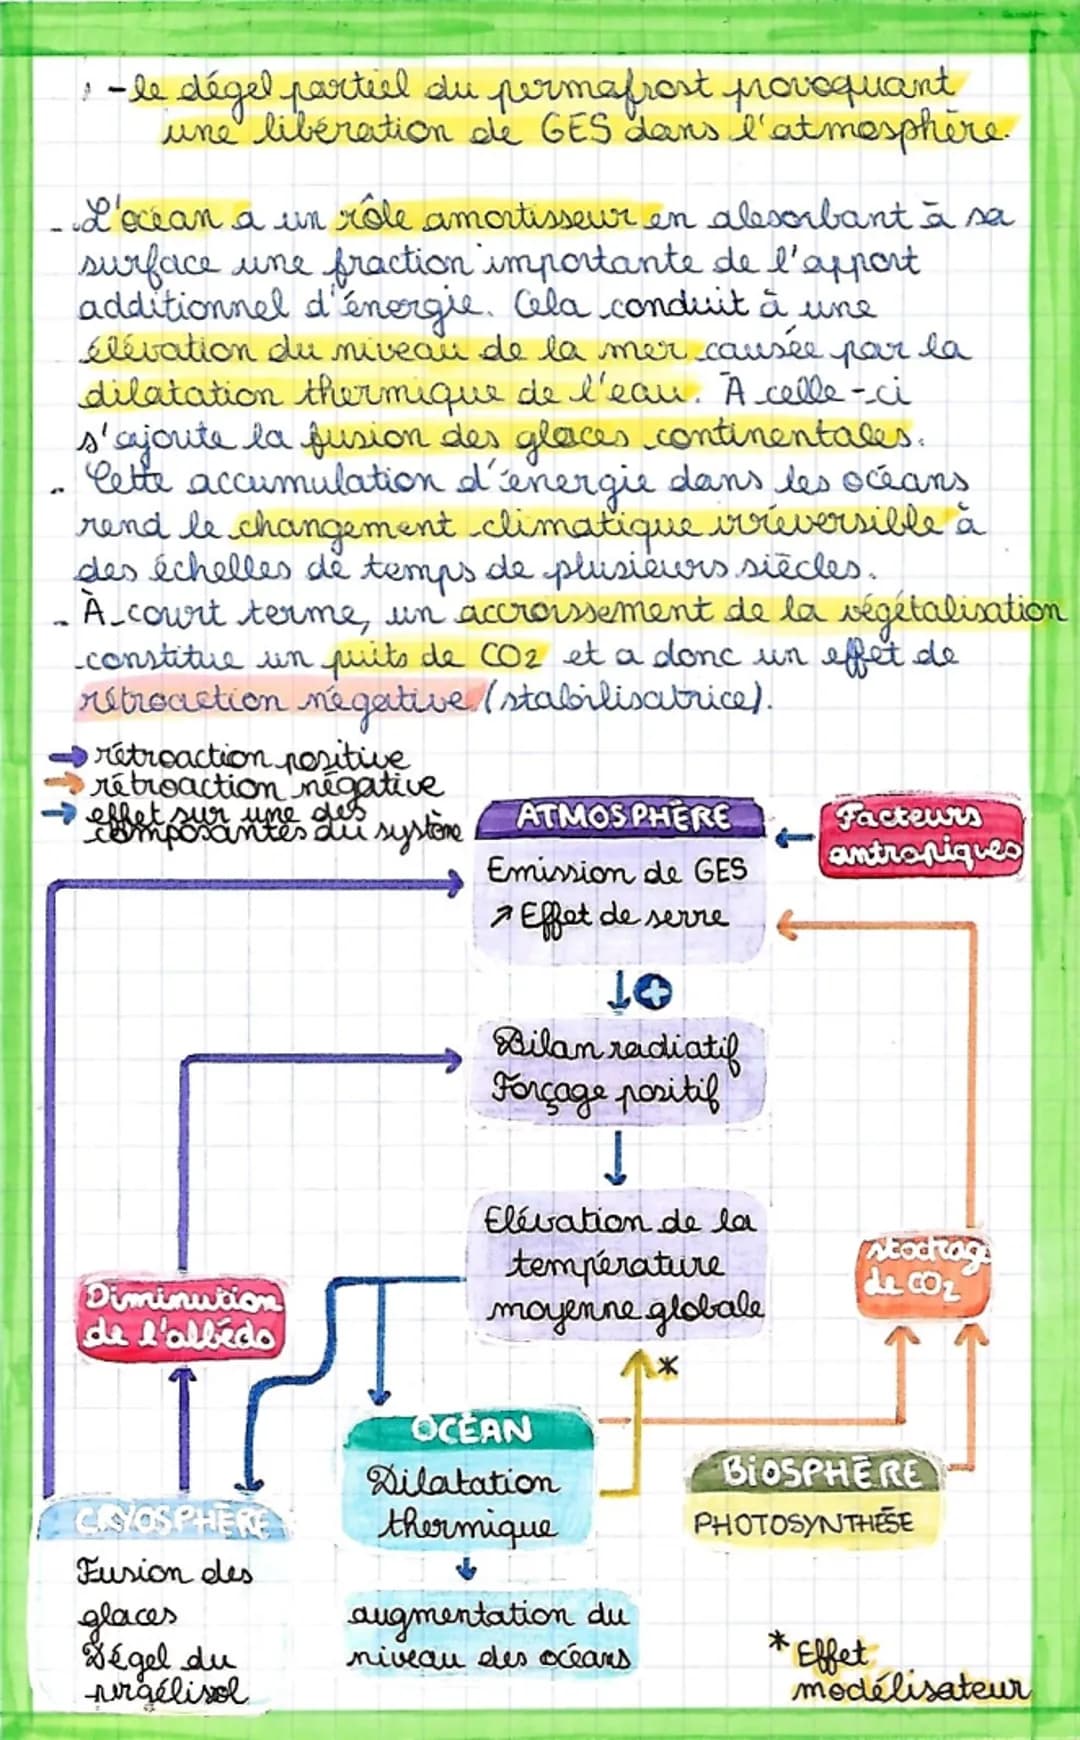 - le dégel partiel du permafrost provoquant
une libération de GES dans l'atmosphère.
- L'océan a un rôle amortisseur en absorbant à sa
surface une fraction importante de l'apport
additionnel d'énergie. Cela conduit à une
élévation du niveau de la mer causée par la
dilatation thermique de l'eau. À celle-ci
s'ajoute la fusion des glaces continentales.
- Cette accumulation d'énergie dans les océans
rend le changement climatique irréversible à
des échelles de temps de plusieurs siècles.
- À court terme, un accroissement de la végétalisation
constitue un puits de CO2 et a donc un effet de
rétroaction négative (stabilisatrice).
→ rétroaction positive
→ rétroaction négative
→ effet sur une des
composantes du système
ATMOSPHÈRE
Emission de GES
↗ Effet de serre
Facteurs
antropiques
↓ +
Bilan radiatif
Forçage positif
Elévation de la
température
moyenne globale
stockage
de CO2
Diminution
de l'albédo
*
OCÉAN
Dilatation
thermique
augmentation du
niveau des océans
BIOSPHÈRE
PHOTOSYNTHÈSE
CRYOSPHÈRE
Fusion des
glaces
Dégel du
pergélisol
* Effet
modélisateur